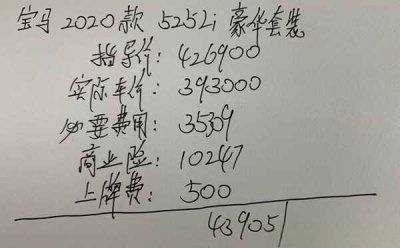 宝马 2020款 525Li 豪华套装
指导价: 426900
实际车价: 393000
必要费用: 35309
商业险: 10247
上牌费: 500
439051